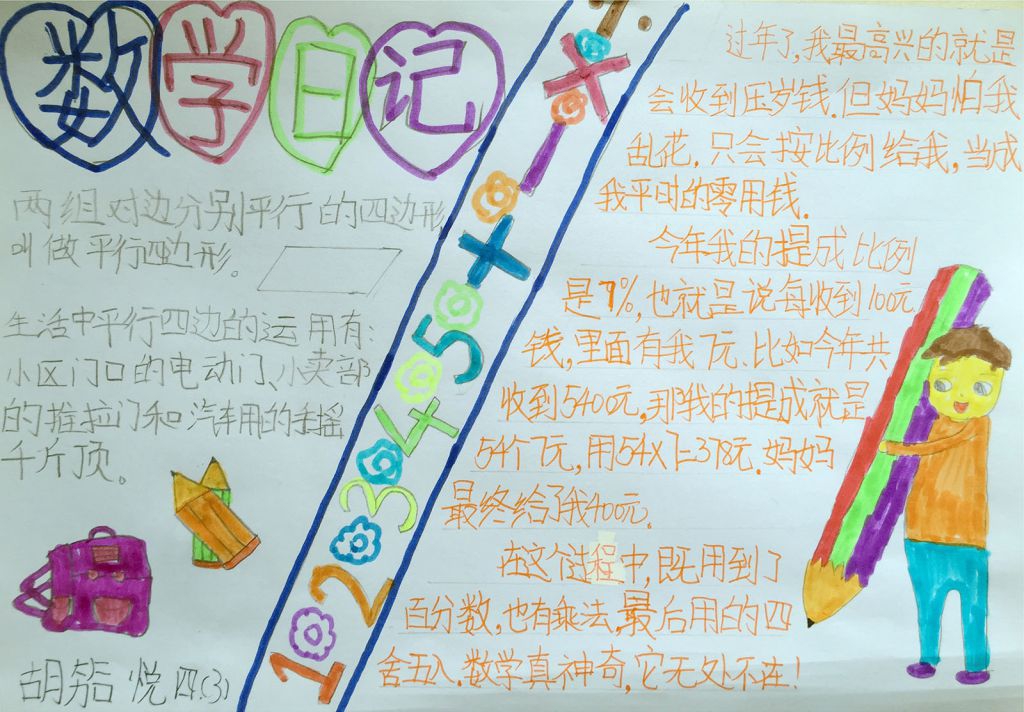 数学日记
两组对边分别平行的四边形
叫做平行四边形。
生活中平行四边的运用有:
小区门口的电动门、小卖部
的推拉门和汽车用的手摇
千斤顶。
胡 悦 四(3)
1 2 3 4 5 + - × ÷
过年了,我最高兴的就是
会收到压岁钱.但妈妈怕我
乱花,只会按比例给我,当成
我平时的零用钱.
今年我的提成比例
是7%,也就是说每收到100元
钱,里面有我7元.比如今年共
收到5400元,那我的提成就是
54个7元,用54×7=378元.妈妈
最终给了我400元.
在这个过程中,既用到了
百分数,也有乘法,最后用的四
舍五入.数学真神奇,它无处不在!